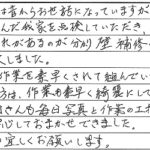 は昔からお世話になっていますが
んだ我家を点検していただき、
れがあるのが分かり壁補修
しました。
作業を素早くされて組んでい
方は、作業も素早く綺麗にして
さんも毎日写真と作業の工
心しておまかせできました。
宜しくお願いします。